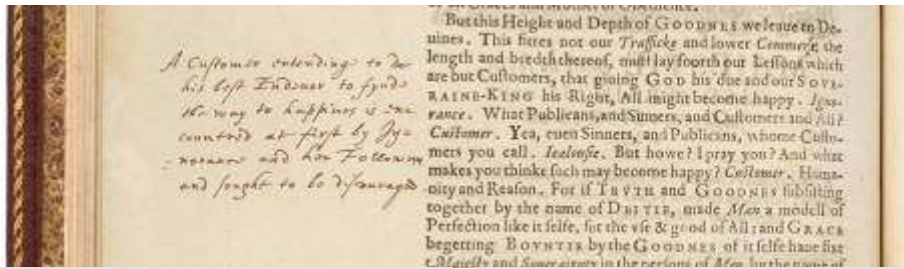 A Customer entending to do
his best Endeuer to fynde
the way to happines is enc
countred at first by Jg-
norance and her Followers
and sought to be discouraged
But this Height and Depth of GOODNES we leaue to De-
uines. This fittes not our Trafficke and lower Commerse, the
length and bredth thereof, must lay foorth our Lessons which
are but Customers, that giuing GOD his due and our SOVE-
RAINE-KING his Right, All might become happy. Igno-
rance. What Publicans, and Sinners, and Customers and All?
Customer. Yea, euen Sinners, and Publicans, whome Custo-
mers you call. Iealousie. But howe? I pray you? And what
makes you thinke such may become happy? Customer. Huma-
nity and Reason. For if TRVTH and GOODNES subsisting
together by the name of DEITIE, made Man a modell of
Perfection like it selfe, for the vse & good of All: and GRACE
begetting BOVNTIE by the GOODNES of it selfe haue fixt
Maiesty and Soueraignty in the persons of Men by the name of